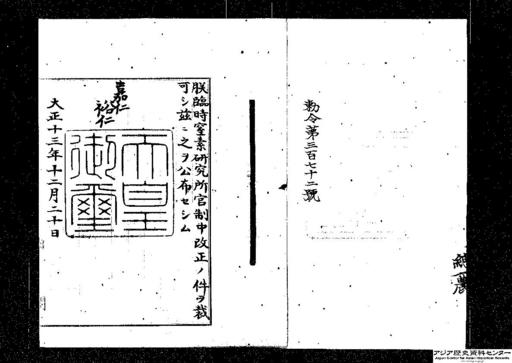 勅令第三百七十二號
朕臨時窒素研究所官制中改正ノ件ヲ裁
可シ茲ニ之ヲ公布セシム
嘉仁
裕仁
天皇
御璽
大正十三年十二月二十日
アジア歴史資料センター
Japan Center for Asian Historical Records